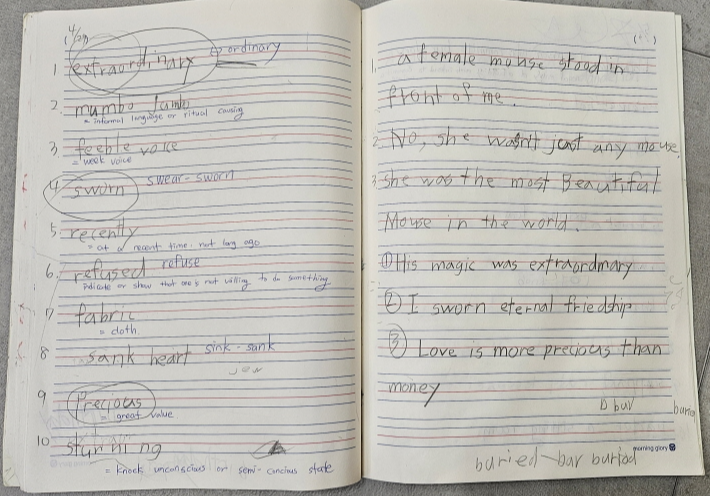 (4/27)
1 extraordinary → ordinary
2. mumbo Jumbo
= informal language or ritual causing
3, feeble voice
= weak voice
4. sworn swear-sworn
5. recently
= at a recent time. not long ago
6. refused refuse
indicate or show that one's not willing to do something
7 fabric
= cloth
8 sank heart sink-sank
9 Precious
= great value
10 sturning
= knock unconscious or semi-concious state
1. a female mouse stood in
front of me.
2 No, she wasn't just any mouse.
3 She was the most Beautiful
Mouse in the world.
① His magic was extraordmary
② I sworn eternal friedship
③ Love is more precious than
money
bur
buried-bur buriod
morning glory